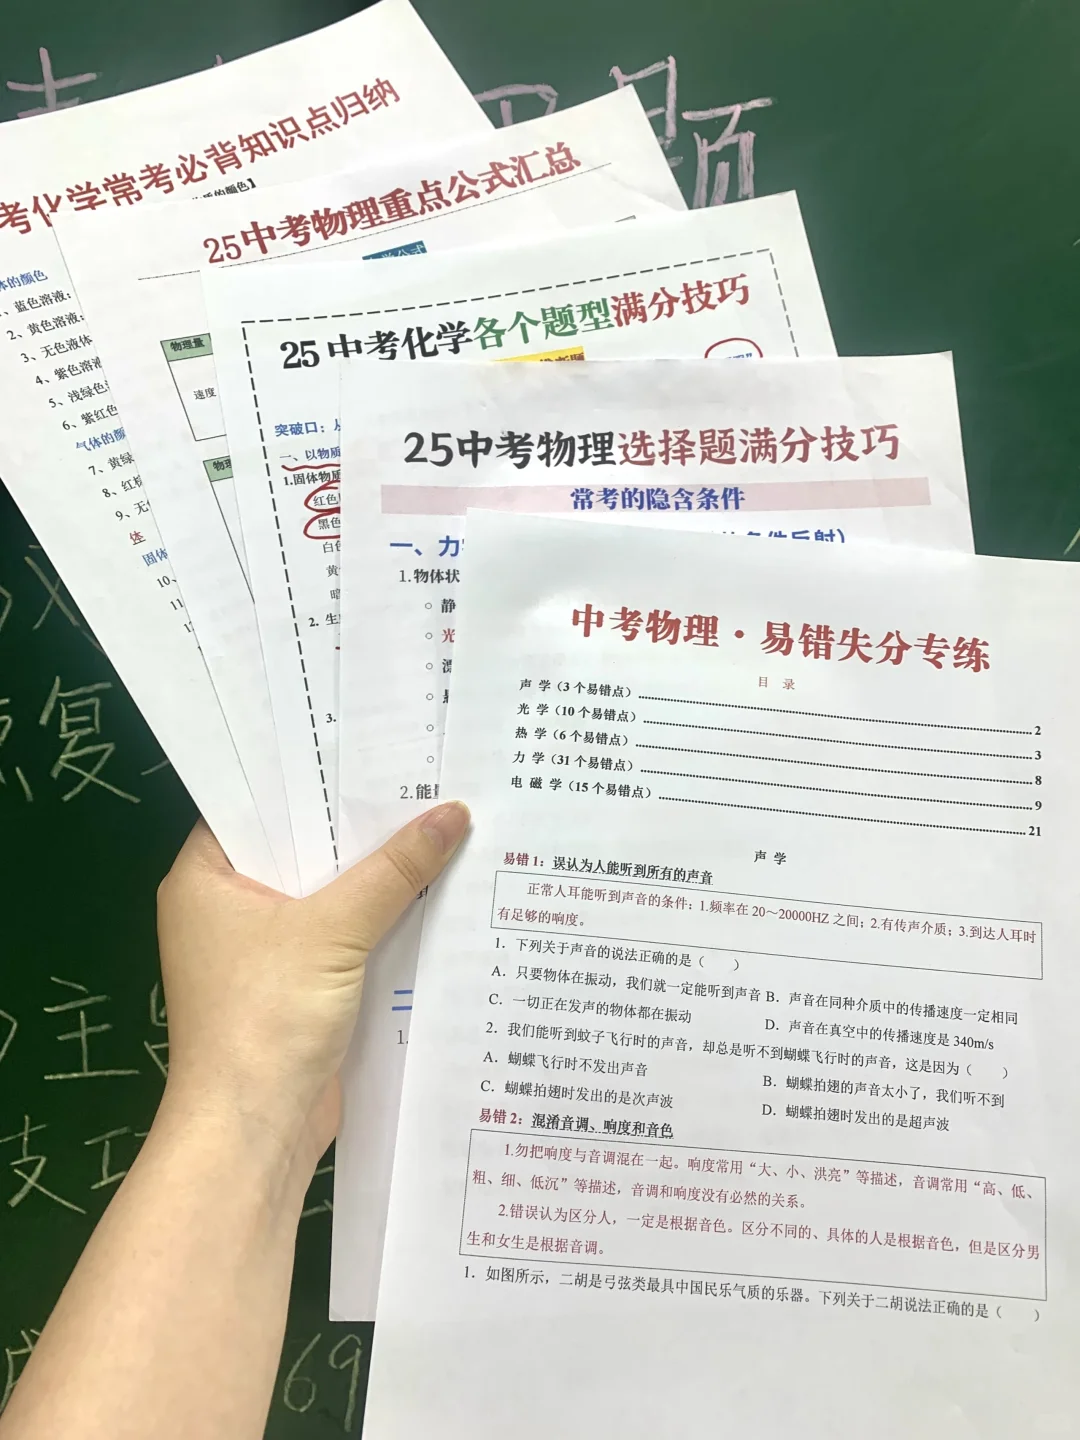 考化学常考必背知识点归纳
体的颜色
蓝色溶液:
2、黄色溶液:
3、无色液体
4、紫色溶液
5、浅绿色
6、紫红色
气体的颜
7、黄绿
8、红棕
9、无
体
固体
10、
11
25中考物理重点公式汇总
物理量
速度
25中考化学各个题型满分技巧
突破口:
一、以物质
1.固体物质
红色
黑色
白色
黄
暗
2. 生
3.
25中考物理选择题满分技巧
常考的隐含条件
一、力
1.物体状
静
光
漂
2.能量
二
1.
中考物理·易错失分专练
目 录
声 学（3个易错点）2
光 学（10个易错点）3
热 学（6个易错点）8
力 学（31个易错点）9
电 磁 学（15个易错点）21
声 学
易错1：误认为人能听到所有的声音
正常人耳能听到声音的条件：1.频率在20～20000HZ之间；2.有传声介质；3.到达人耳时
有足够的响度。
1．下列关于声音的说法正确的是（ ）
A．只要物体在振动，我们就一定能听到声音 B．声音在同种介质中的传播速度一定相同
C．一切正在发声的物体都在振动 D．声音在真空中的传播速度是340m/s
2．我们能听到蚊子飞行时的声音，却总是听不到蝴蝶飞行时的声音，这是因为（ ）
A．蝴蝶飞行时不发出声音 B．蝴蝶拍翅的声音太小了，我们听不到
C．蝴蝶拍翅时发出的是次声波 D．蝴蝶拍翅时发出的是超声波
易错2：混淆音调、响度和音色
1.勿把响度与音调混在一起。响度常用“大、小、洪亮”等描述，音调常用“高、低、
粗、细、低沉”等描述，音调和响度没有必然的关系。
2.错误认为区分人，一定是根据音色。区分不同的、具体的人是根据音色，但是区分男
生和女生是根据音调。
1．如图所示，二胡是弓弦类最具中国民乐气质的乐器。下列关于二胡说法正确的是（ ）
复
主
技巧
69